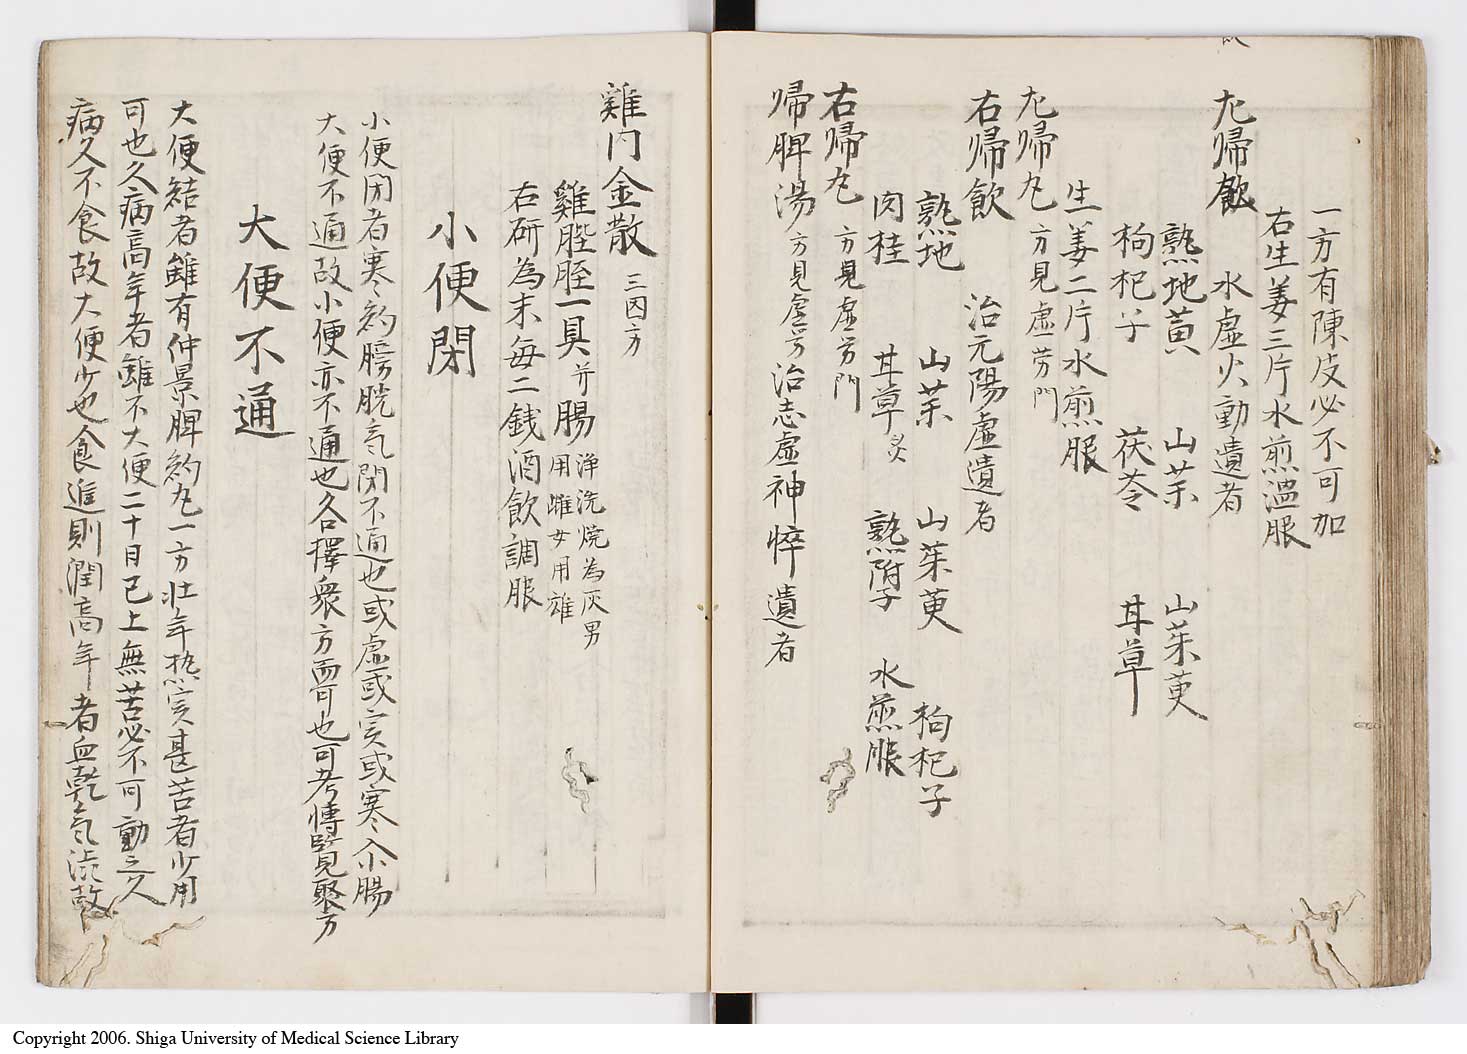 一方有陳皮必不可加
右生姜三片水煎温服
左歸飲　水虚火動遺者
熟地黄　山茱　山茱萸
枸杞子　茯苓　甘草
生姜二片水煎服
左歸丸　方見虚労門
右歸飲　治元陽虚遺者
熟地　山茱　山茱萸　枸杞子
肉桂　甘草炙　熟附子　水煎服
右歸丸　方見虚労門
歸脾湯　方見虚労　治志虚神悴遺者
雞内金散　三因方
雞膍胵一具并腸　浄洗焼為灰男
用雌女用雄
右研為末毎二銭酒飲調服
小便閉
小便閉者寒約膀胱気閉不通也或虚或実或寒入小腸
大便不通故小便亦不通也各擇衆方而可也可考博覧聚方
大便不通
大便結者雖有仲景脾約丸一方壮年熱実甚苦者少用
可也久病高年者雖不大便二十日已上無苦必不可動之久
病久不食故大便少也食進則潤高年者血乾気渋故
Copyright 2006. Shiga University of Medical Science Library